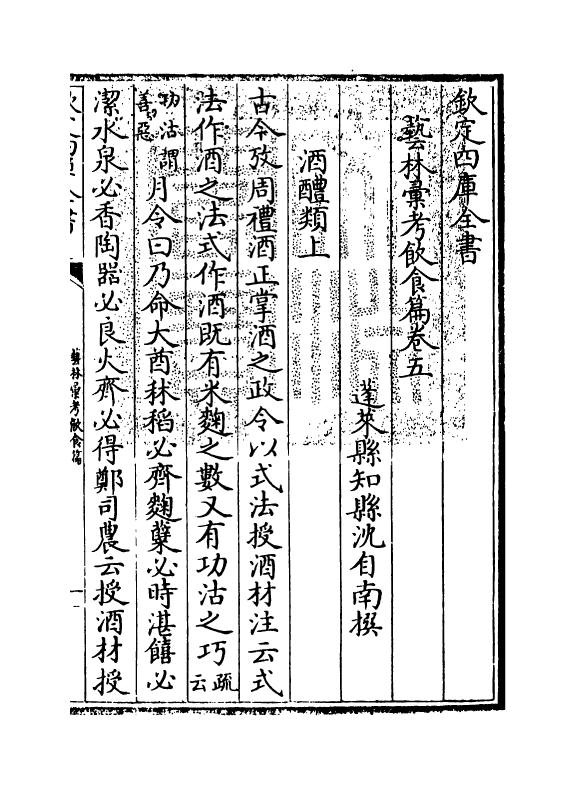 欽定四庫全書
藝林彙考飲食篇卷五
蓬萊縣知縣沈自南撰
酒醴類上
古今攷周禮酒正掌酒之政令以式法授酒材注云式
法作酒之法式作酒既有米麴之數又有功沽之巧疏云
功沽謂善惡月令曰乃命大酋秫稻必齊麴糵必時湛饎必
潔水泉必香陶器必良火齊必得鄭司農云授酒材授
藝林彙考飲食篇
一